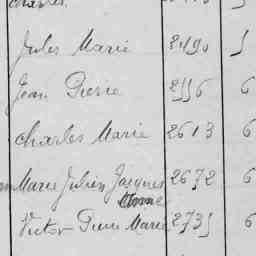 Charles.
Jules Marie 2490 5
Jean Pierre 2556 6
Charles Marie 2613 6
Marie Julien Jacques 2672 6
Victor Pierre Marie 2735 6